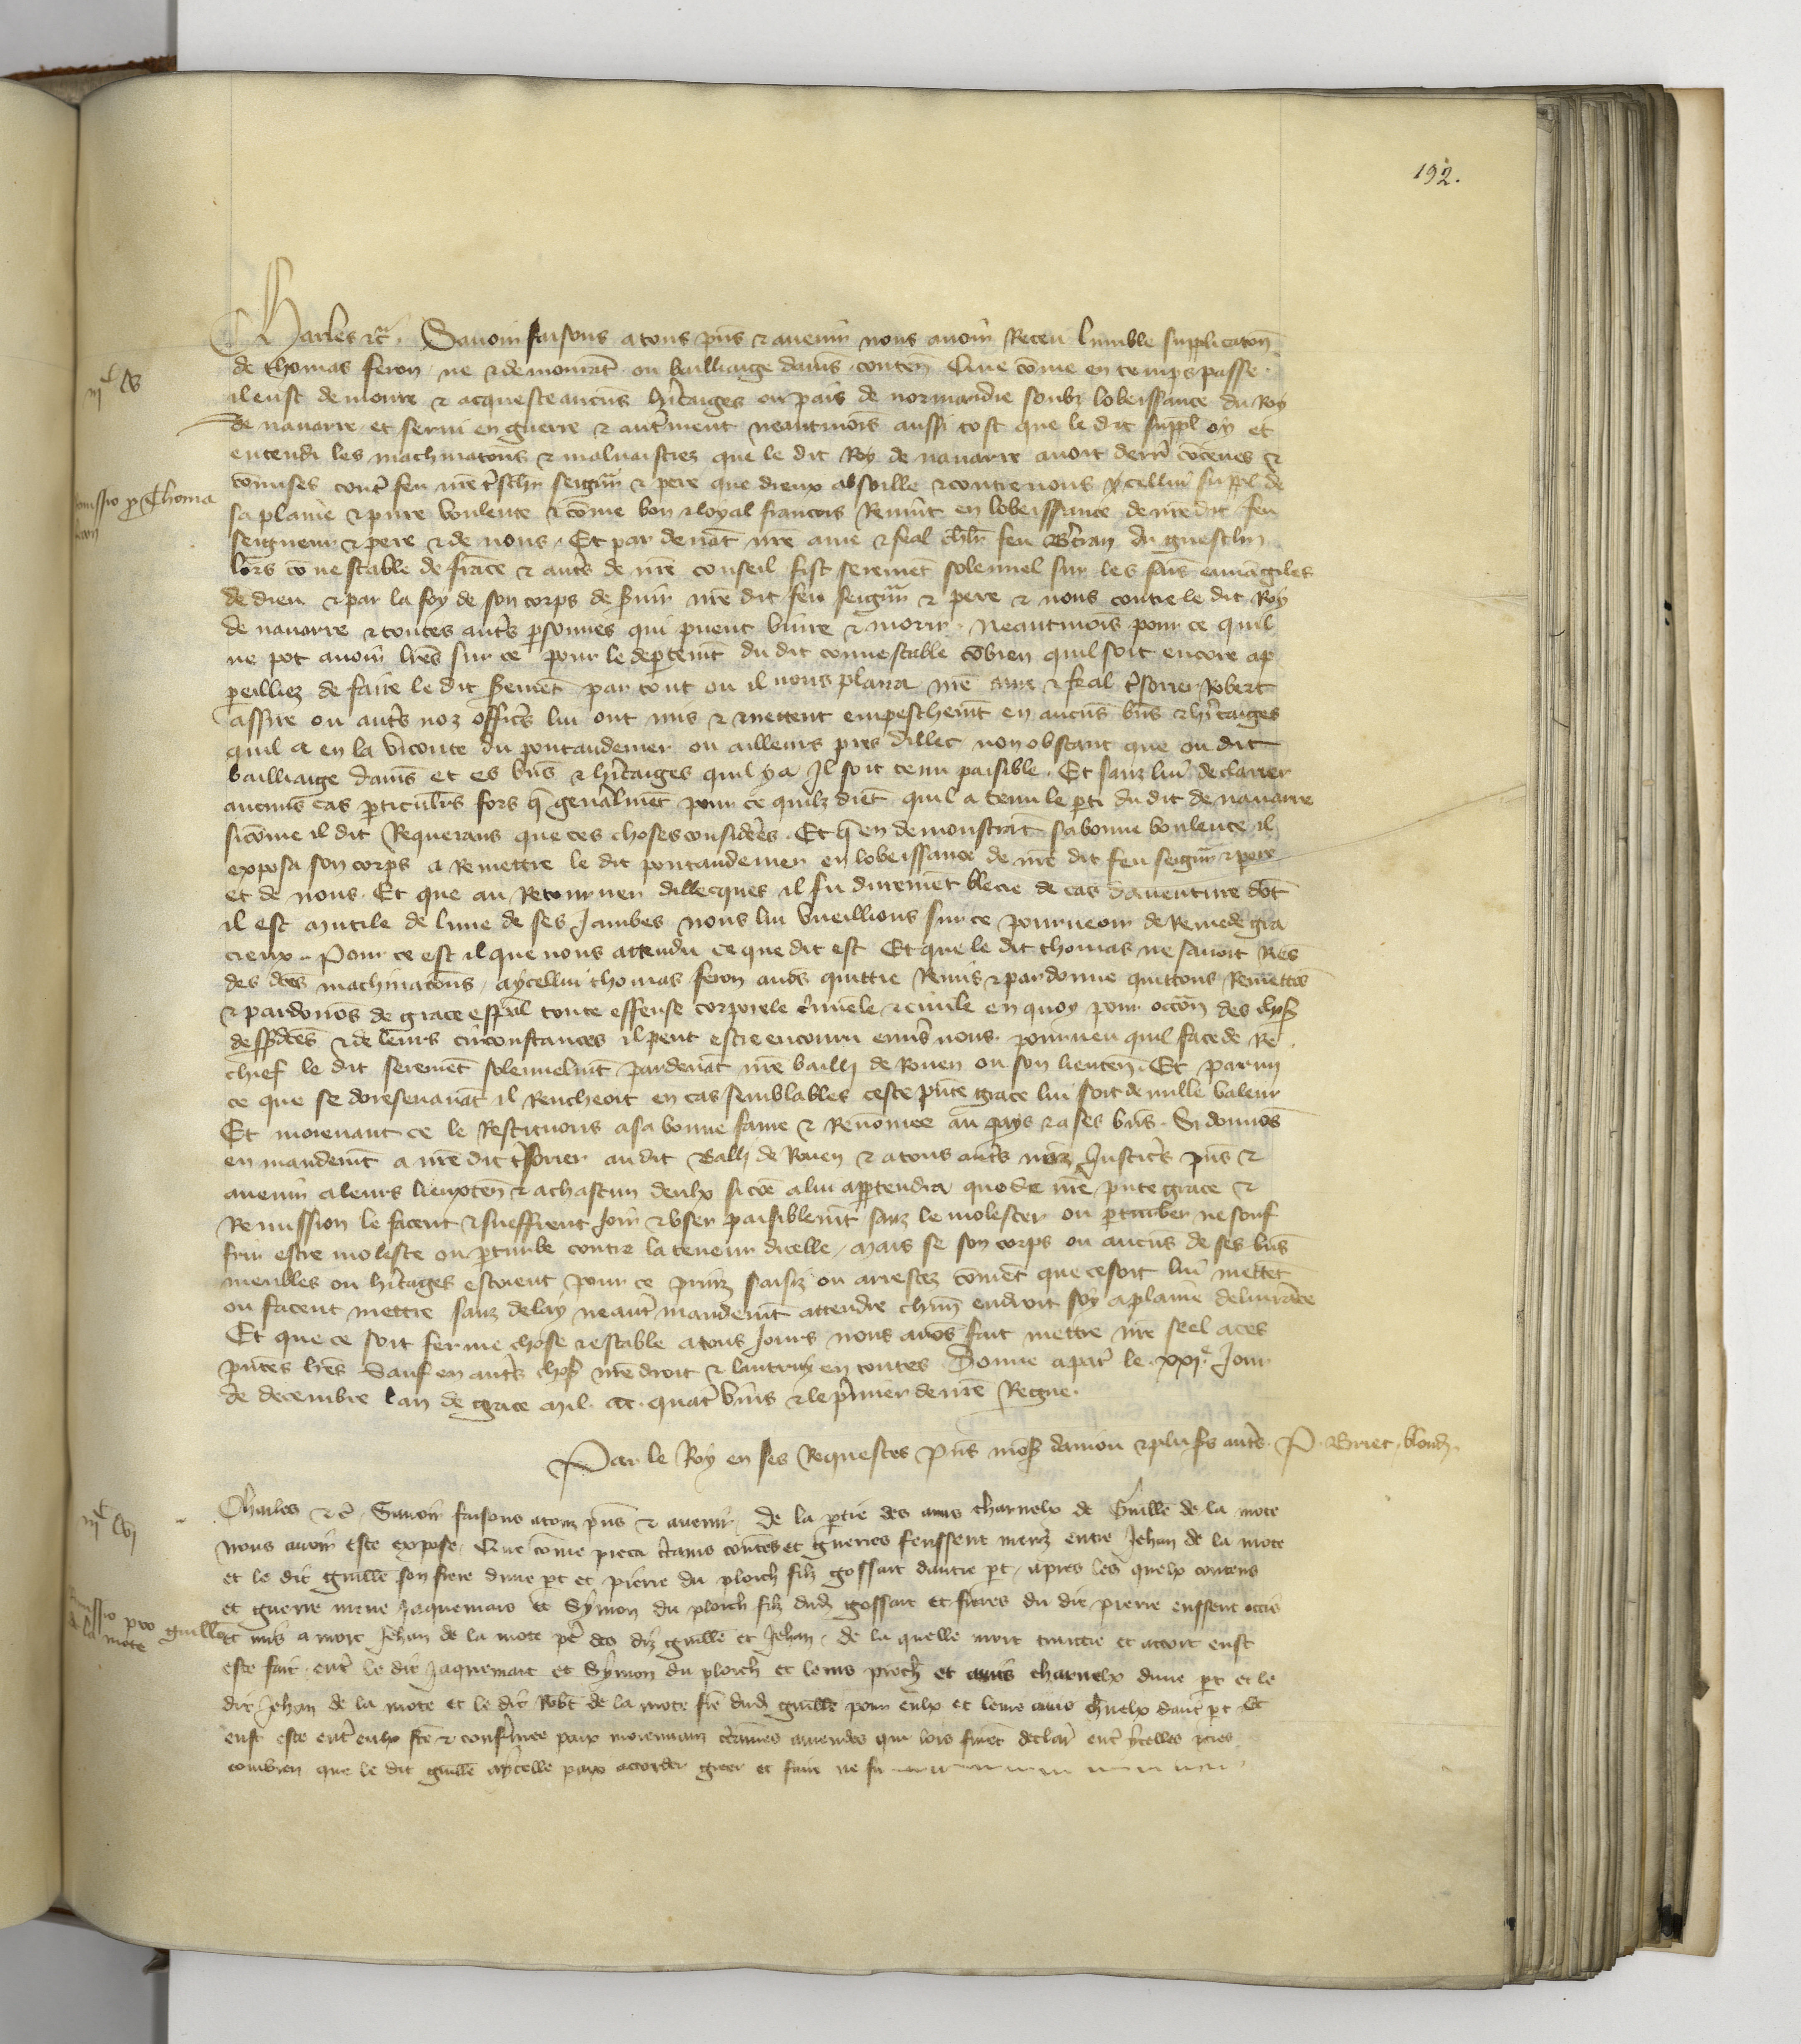 192.
Charles etc̃. Savoir faisons a tous pñs & avenir nous avoir Receu lumble supplicacion
de thomas feron ne & demourãt ou bailliaige damis contenãt Que cõme en temps passe
il eust demoure & acqueste aucũs hẽritaiges ou pais de normandie soubz lobeissance du Roy
de navarre et servi en guerre & autrement neantmoĩs aussi tost que le dit suppl oy et
entendi les machinatons & malvaistiez que le dit Roy de navarre avoit &
cõmises contre feu nr̃e tr̃schr̃ seignr̃ & pere que dieux absoille & contre nous ycellui suppl de
sa plaine & pure voulente & cõme bon & loyal francois Revint en lobeissance de nr̃e dit feu
seigneur & pere & de nous. Et par devãt nr̃e ame & feal chl̃r feu Bertran du guesclin
lors cõnestable de frãce & autr̃s de nr̃e conseil fist seremẽt solennel sur les sais euuãgiles
de dieu & par la foy de son corps de s̃vir nr̃e dit feu seignr̃ & pere & nous contre le dit Roy
de navarre & toutes autr̃s p̃sonnes qui puent vivre & morir. Neantmoĩs pour ce quil
ne pot avoir lr̃es sur ce pour le dep̃temt du dit connestable cõbien quil soit encore ap
peilliez de faire le dit s̃remẽt par tout ou il nous plaira nr̃e ame & feal tr̃sorier Robert
assire ou autr̃s noz officr̃s lui ont mis & mettent empeschemt en aucũs biẽs & hr̃itaiges
quil a en la viconte du pontaudemer ou ailleurs pres dillec non obstant que ou dit
bailliaige damis et es biẽs & hr̃itaiges quil y a Il soit tenu paisible. Et sanz lui declairer
aucuns cas p̃ticulr̃s fors q̃ genãlmẽt pour ce quilz diẽt quil a tenu le p̃ti du dit de navarre
sicõme il dit Requerans que ces choses considr̃ees. Et q̃ en demonstrãt sa bonne voulente il
exposa son corps a Remettre le dit pontaudemer en lobeissance de nr̃e dit feu seignr̃ & pere
et de nous. Et que au Retourner dillecques il fu duremẽt blecie de cas daventure dõt
il est mutile de lune de ses Jambes nous lui vueillions sur ce pourveoir de Remede gra
cieux. Pour ce est il que nous attendu ce que dit est Et que le dit thomas ne savoit Riẽs
des dc̃es machinacõns, a ycellui thomas feron avõs quittie Remis & pardonne quittons Remettõs
& pardonõs de grace esp̃ial toute offense corporele cr̃iminele & civile en quoy pour occõn des choses
dessusdc̃es & de leurs circonstances il peut estre encouru env̾s nous. pourveu quil face de Re
chief le dit seremẽt solennelmt pardevãt nr̃e bailli de Rouen ou son lieuten̾. Et parmi
ce que se doresenavãt il Rencheoit en cas semblables ceste p̃nte grace lui soit de nulle valeur
Et moienant ce le Restituons a sa bonne fame & Renõmee au pays & a ses biẽs. Si donnõs
en mandemt a nr̃e dit tr̃sorier au dit Balli de Rouen & a tous autr̃s noz Justicr̃s pñs &
avenir a leurs lieuxten̾ & a chascun deulx si cõe a lui app̃tendra que de nr̃e p̃nte grace &
Remission le facent & sueffrent Joir & user paisiblemt sanz le molester ou p̃turber ne souf
frir estre moleste ou p̃turbe contre la teneur dicelle, mais se son corps ou aucũs de ses biẽs
meubles ou hr̃itages estoient pour ce prins saisiz ou arrestez cõmẽt que ce soit lui mettẽt
ou facent mettre sanz delay ne autr̃ mandemt attendre chũn endroit soy a plaine delivrãce
Et que ce soit ferme chose & estable a tous Jours nous avõs fait mettre nr̃e seel a ces
p̃ntes lr̃es Sauf en autr̃s choses nr̃e droit & lautruy en toutes. Donne a par̾ le xxi.e Jour
de decembre lan de grace mil. ccc. quatr̾ vins & le pr̃mier de nr̃e Regne.
Par le Roy en ses Requestes p̃ns mons̾ danjou & plus̾s autr̃s. P. Briet. blond.
iijc lv
Remissio p̱ Thoma
feron
Charles etc̃. Savoir faisons a touz p̃ns & avenir, De la p̱tie des amis charnelx de Guille de la mote
nous avoir este expose, Que cõme pieca cr̾tains contẽs et guerres feussent meuz entre Jehan de la mote
et le dit guille son frere dune p̱t et pierre du ploich filz gossart dautre p̱t, apres les quelx contens
et guerre meue Jaquemart et Symon du ploich filz dud. gossart et freres du dit pierre eussent occis
et mis a mort Jehan de la mote pe̾ des diz guille et Jehan, de la quelle mort traittie et accort eust
este fait entr̾ le dit Jaquemart et Symon du ploich et leurs proch̾ et amis charnelx dune p̱t et le
dit Jehan de la mote et le dit Robt̾ de la mote fr̾e dud. guille pour eulx et leurs amis ch̾nelx daut̾ p̱t Et
eust este entr̾ eulx fc̃e & conf̾mee paix moiennanz cr̾taines amendes qui lors furẽt declair̾ entr̾ ycelles p̱ties
combien que le dit guille a ycelle paix accorder greer et faire ne fu
iijc lvi
Remissio pro guillo
de la mote